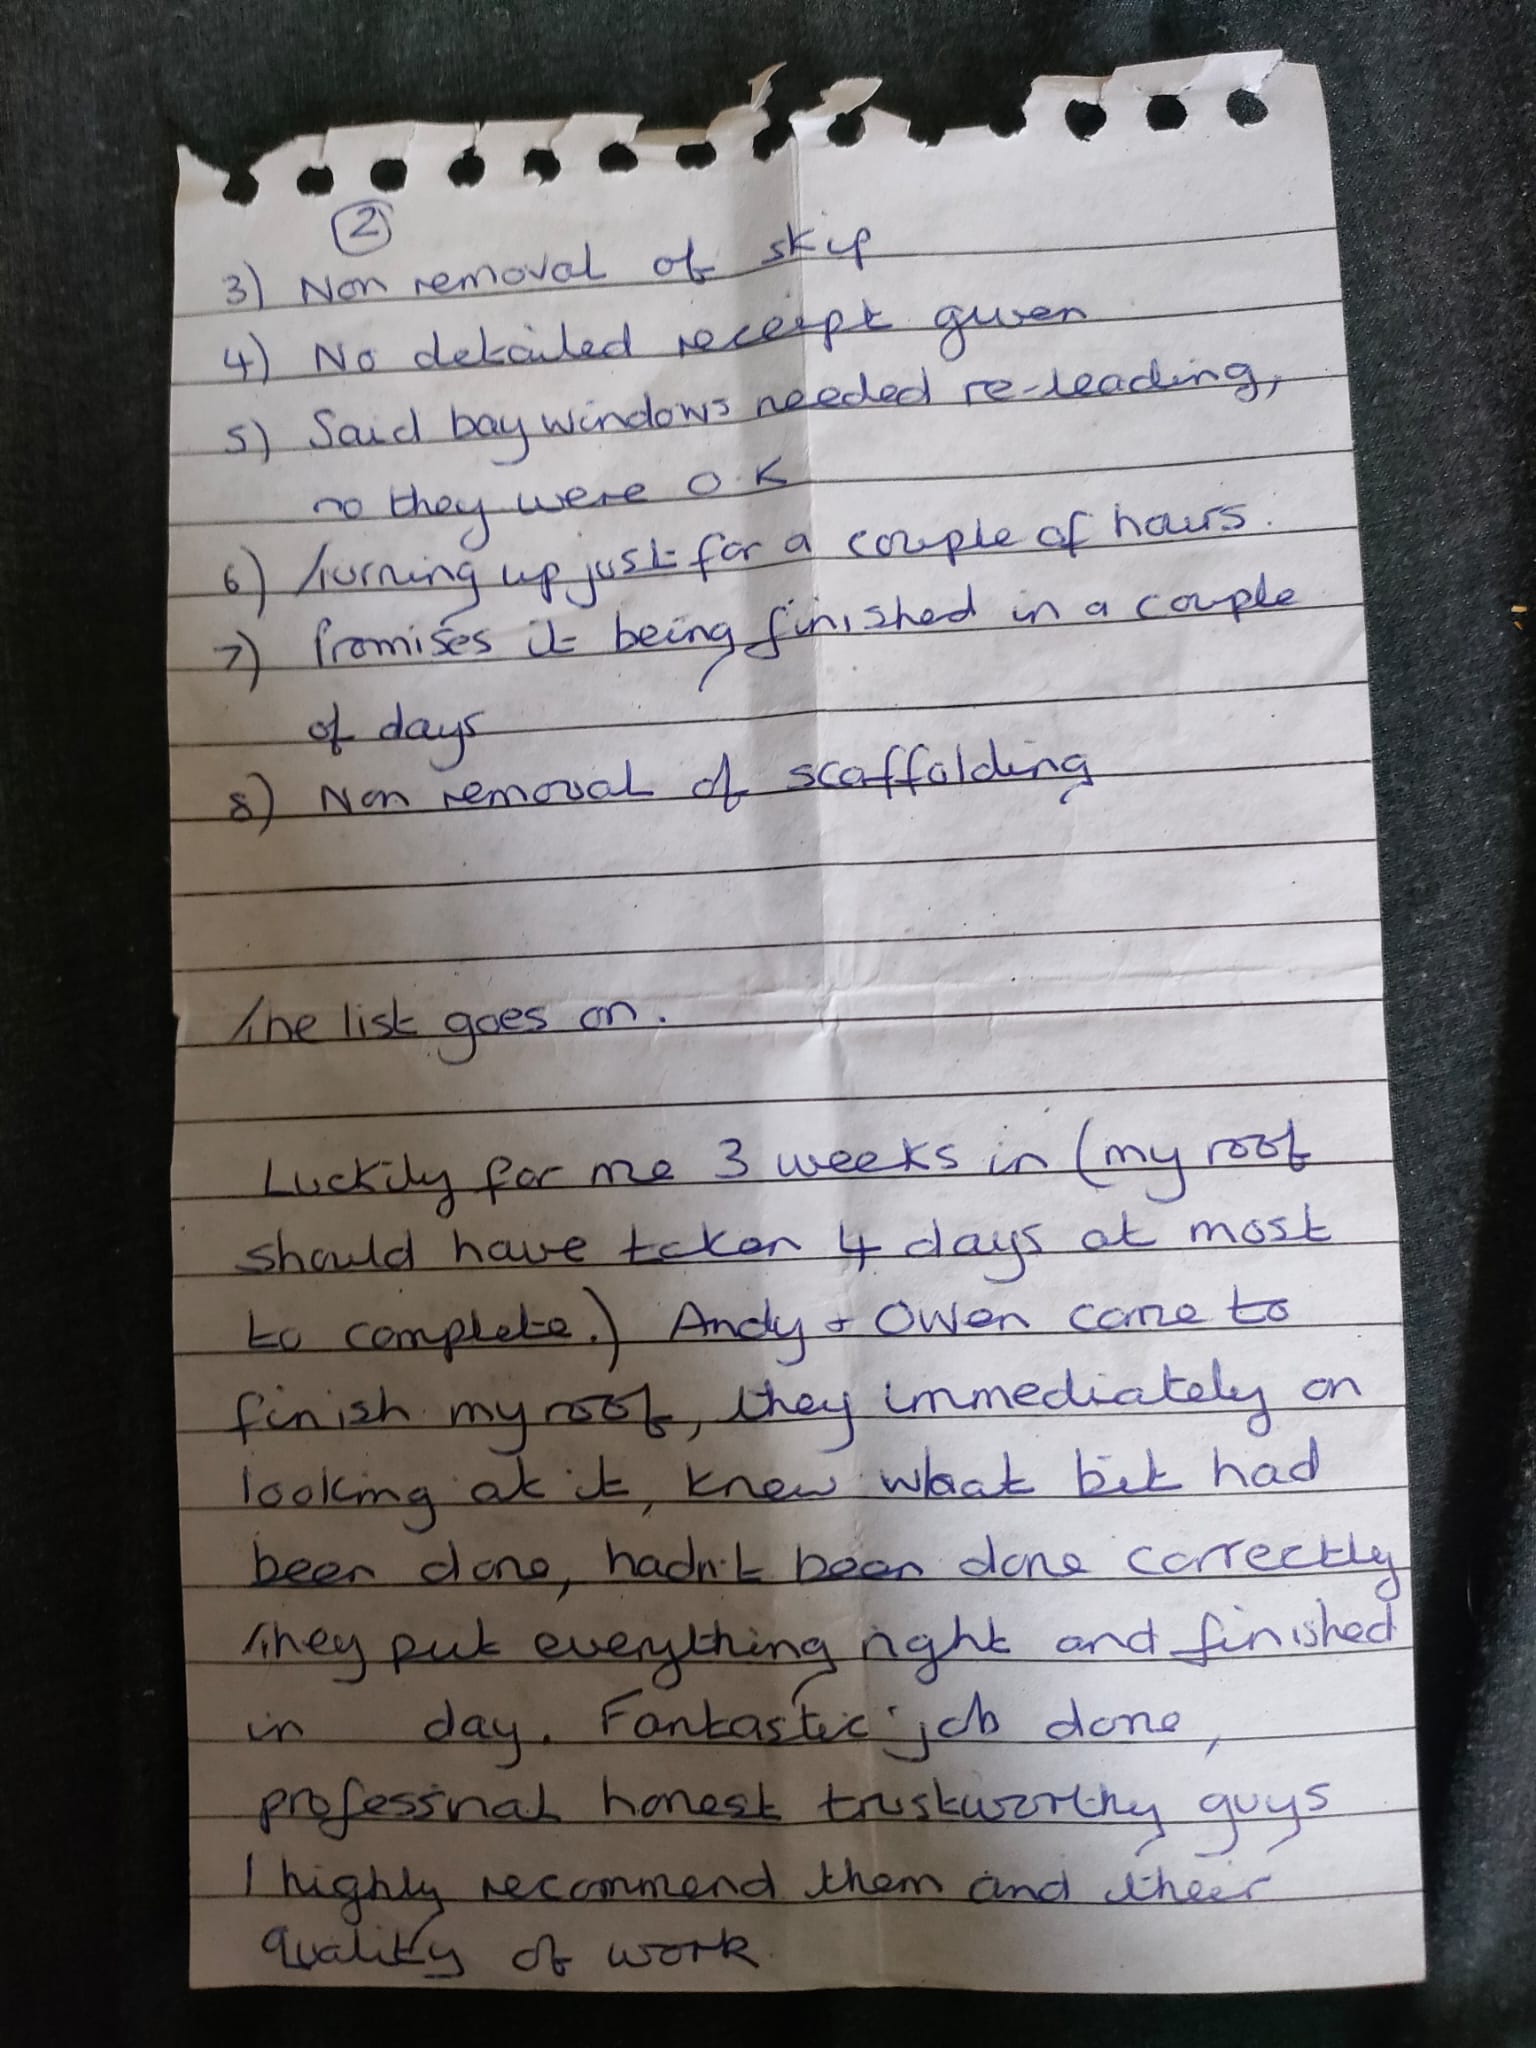 2
3) Non removal of skip
4) No detailed receipt given
5) Said bay windows needed re-leading,
no they were O.K
6) Turning up just for a couple of hours.
7) Promises it being finished in a couple
of days
8) Non removal of scaffolding
The list goes on.
Luckily for me 3 weeks in (my roof
should have taken 4 days at most
to complete.) Andy + Owen came to
finish my roof, they immediately on
looking at it, knew what bit had
been done, hadn't been done correctly
They put everything right and finished
in day. Fantastic job done,
professinal honest trustworthy guys
I highly recommend them and their
quality of work